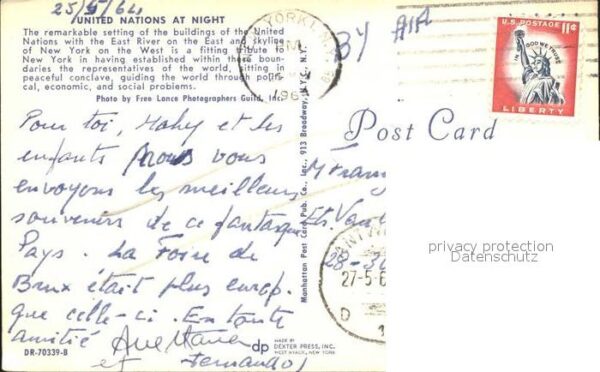 25/5/64
UNITED NATIONS AT NIGHT
The remarkable setting of the buildings of the United
Nations with the East River on the East and skyline
of New York on the West is a fitting tribute to
New York in having established within these boun-
daries the representatives of the world, sitting in
peaceful conclave, guiding the world through politi-
cal, economic, and social problems.
Photo by Free Lance Photographers Guild, Inc.
BY AIR
U.S. POSTAGE 11¢
IN GOD WE TRUST
LIBERTY
Post Card
Pour toi, et les
enfants nous vous
envoyons les meilleurs
souvenirs de ce fantastique
Pays. La Foire de
Brux était plus europ.
que celle-ci. En toute
amitié
et Fernando
Manhattan Post Card Pub. Co., Inc., 913 Broadway, N.Y.C., N.Y.
28-30
27-5-6
D
privacy protection
Datenschutz
DR-70339-B
dp
MADE BY
DEXTER PRESS, INC.
WEST NYACK, NEW YORK